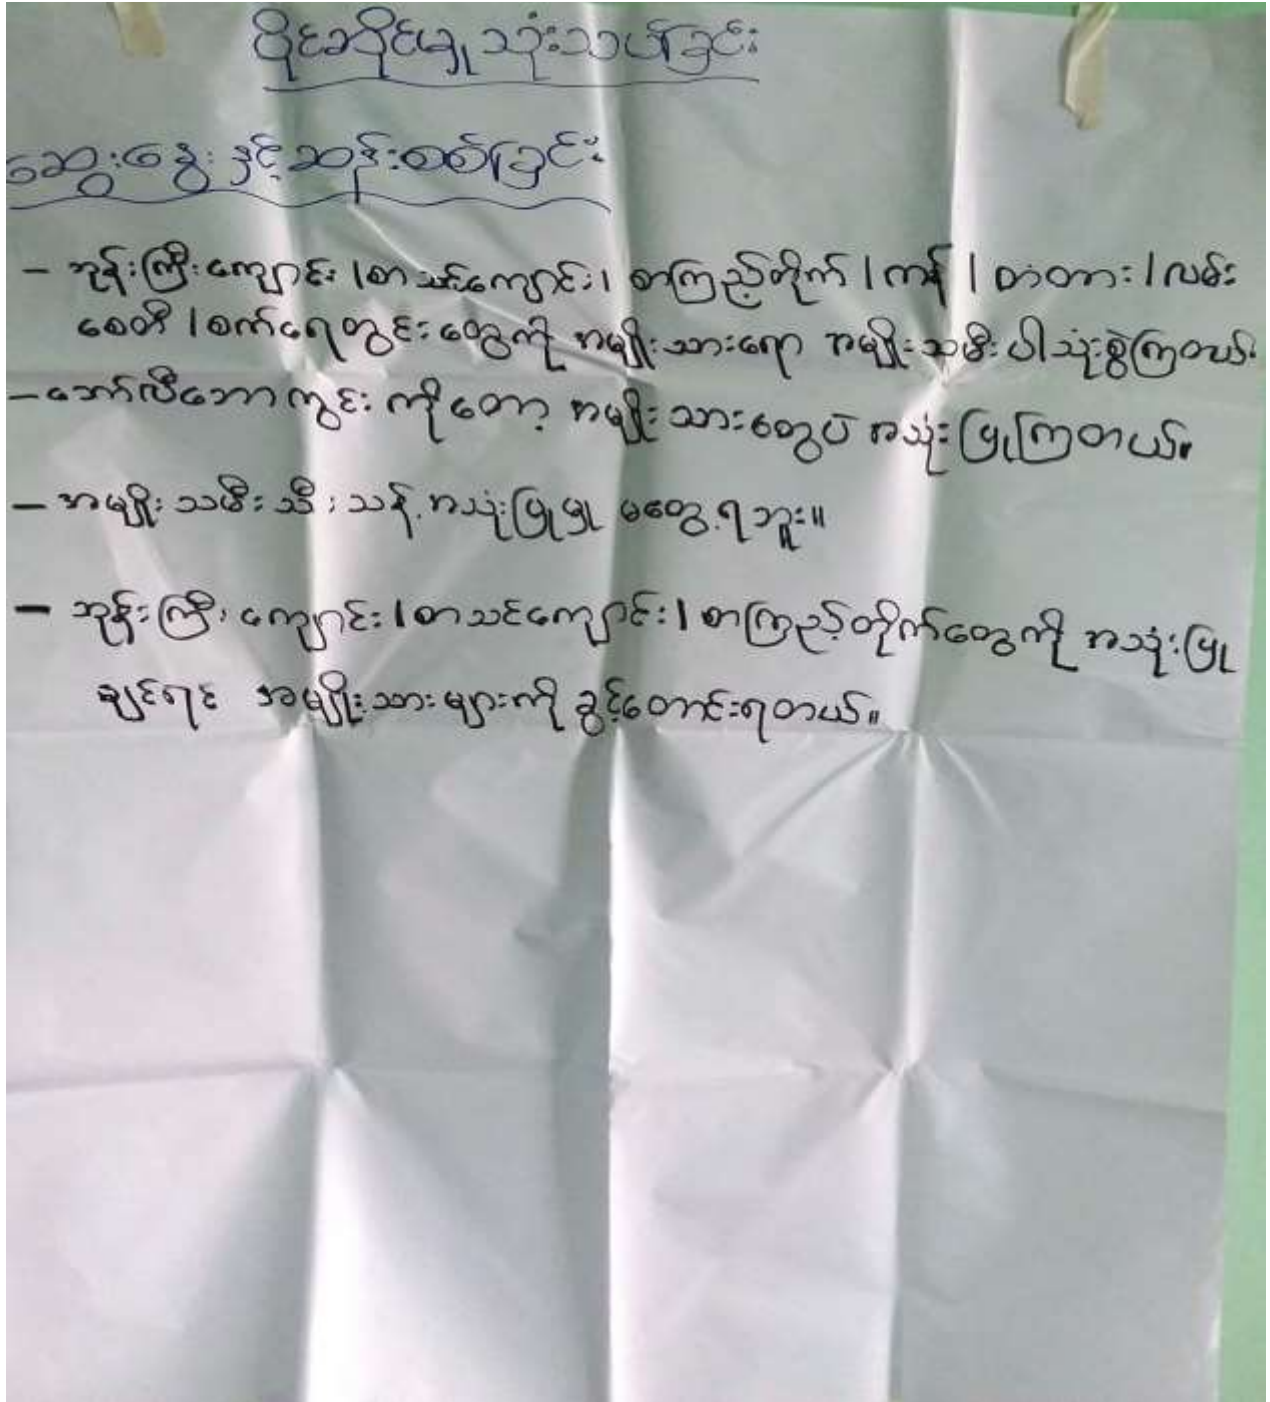 ပိုင်ဆိုင်မှု သုံးသပ်ခြင်း
ဆွေးနွေး နှင့် ဆန်းစစ်ခြင်း
- ဘုန်းကြီးကျောင်း / စာသင်ကျောင်း / စာကြည့်တိုက် / ကန် / တံတား / လမ်း
စေတီ / စက်ရေတွင်း တွေကို အမျိုးသားရော အမျိုးသမီးပါ သုံးစွဲကြတယ်။
- ဘော်လီဘောကွင်း ကိုတော့ အမျိုးသားတွေပဲ အသုံးပြုကြတယ်။
- အမျိုးသမီး သီးသန့် အသုံးပြုမှု မတွေ့ရဘူး။
- ဘုန်းကြီးကျောင်း / စာသင်ကျောင်း / စာကြည့်တိုက်တွေကို အသုံးပြု
ချင်ရင် အမျိုးသားများကို ခွင့်တောင်းရတယ်။